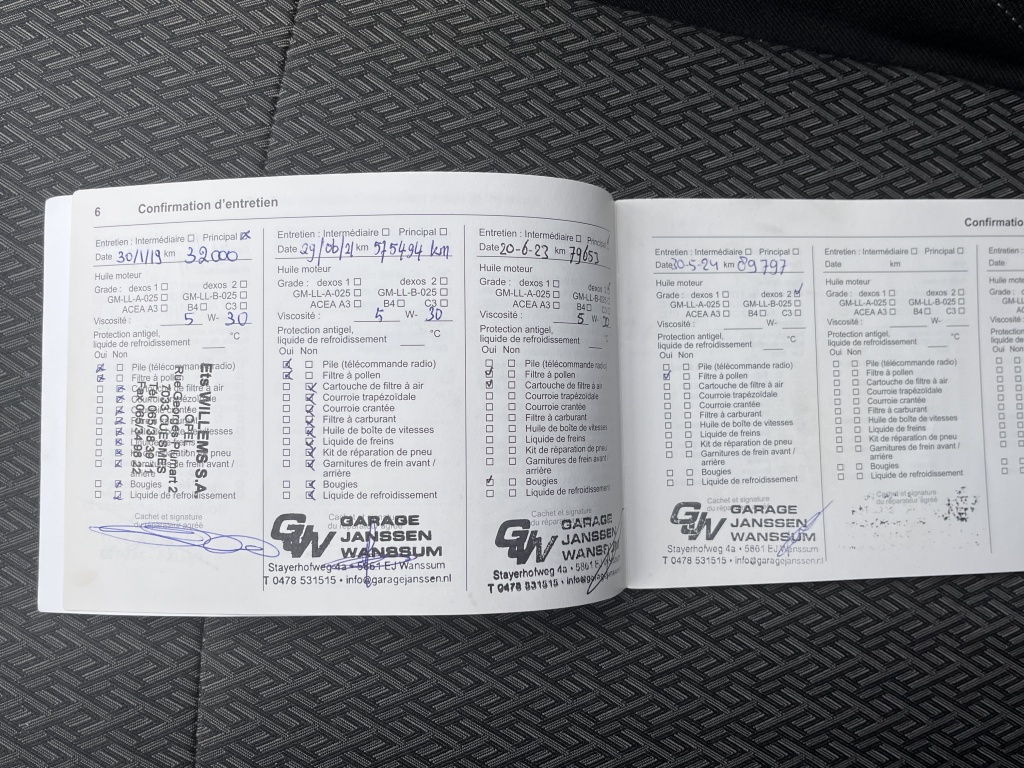 6 Confirmation d'entretien
Entretien : Intermédiaire Principal
Date 30/1/19 km 32000
Huile moteur
Grade : dexos 1 dexos 2
GM-LL-A-025 GM-LL-B-025
ACEA A3 B4 C3
Viscosité : 5 W- 30
Protection antigel,
liquide de refroidissement °C
Oui Non
Pile (télécommande radio)
Filtre à pollen
filtre à air
Bougies
Liquide de refroidissement
Cachet et signature
du réparateur agréé
Ets WILLEMS S.A.
OPEL
Entretien : Intermédiaire Principal
Date 29/06/21 km 575494 km
Huile moteur
Grade : dexos 1 dexos 2
GM-LL-A-025 GM-LL-B-025
ACEA A3 B4 C3
Viscosité : 5 W- 30
Protection antigel,
liquide de refroidissement °C
Oui Non
Pile (télécommande radio)
Filtre à pollen
Cartouche de filtre à air
Courroie trapézoïdale
Courroie crantée
Filtre à carburant
Huile de boîte de vitesses
Liquide de freins
Kit de réparation de pneu
Garnitures de frein avant /
arrière
Bougies
Liquide de refroidissement
Cachet et signature
GW GARAGE
JANSSEN
WANSSUM
Stayerhofweg 4a • 5861 EJ Wanssum
T 0478 531515 • info@garagejanssen.nl
Entretien : Intermédiaire Principal
Date 20-6-23 km 79653
Huile moteur
Grade : dexos 1 dexos 2
GM-LL-A-025 GM-LL-B-025
ACEA A3 B4 C3
Viscosité : 5 W- 30
Protection antigel,
liquide de refroidissement °C
Oui Non
Pile (télécommande radio)
Filtre à pollen
Cartouche de filtre à air
Courroie trapézoïdale
Courroie crantée
Filtre à carburant
Huile de boîte de vitesses
Liquide de freins
Kit de réparation de pneu
Garnitures de frein avant /
arrière
Bougies
Liquide de refroidissement
Cachet et signature
GW GARAGE
JANSSEN
WANSSUM
Stayerhofweg 4a • 5861
T 0478 531515 • info@garagejanssen.nl
Confirmatio
Entretien : Intermédiaire Principal
Date 30-5-24 km 89797
Huile moteur
Grade : dexos 1 dexos 2
GM-LL-A-025 GM-LL-B-025
ACEA A3 B4 C3
Viscosité : W-
Protection antigel,
liquide de refroidissement °C
Oui Non
Pile (télécommande radio)
Filtre à pollen
Cartouche de filtre à air
Courroie trapézoïdale
Courroie crantée
Filtre à carburant
Huile de boîte de vitesses
Liquide de freins
Kit de réparation de pneu
Garnitures de frein avant /
arrière
Bougies
Liquide de refroidissement
Cachet et signature
GW GARAGE
JANSSEN
WANSSUM
Stayerhofweg 4a • 5861 EJ Wanssum
T 0478 531515 • info@garagejanssen.nl
Entretien : Intermédiaire Principal
Date km
Huile moteur
Grade : dexos 1 dexos 2
GM-LL-A-025 GM-LL-B-025
ACEA A3 B4 C3
Viscosité : W-
Protection antigel,
liquide de refroidissement °C
Oui Non
Pile (télécommande radio)
Filtre à pollen
Cartouche de filtre à air
Courroie trapézoïdale
Courroie crantée
Filtre à carburant
Huile de boîte de vitesses
Liquide de freins
Kit de réparation de pneu
Garnitures de frein avant /
arrière
Bougies
Liquide de refroidissement
Cachet et signature
Date
Huile mot
Grade :
Viscosité
Protection
liquide de
Oui Non